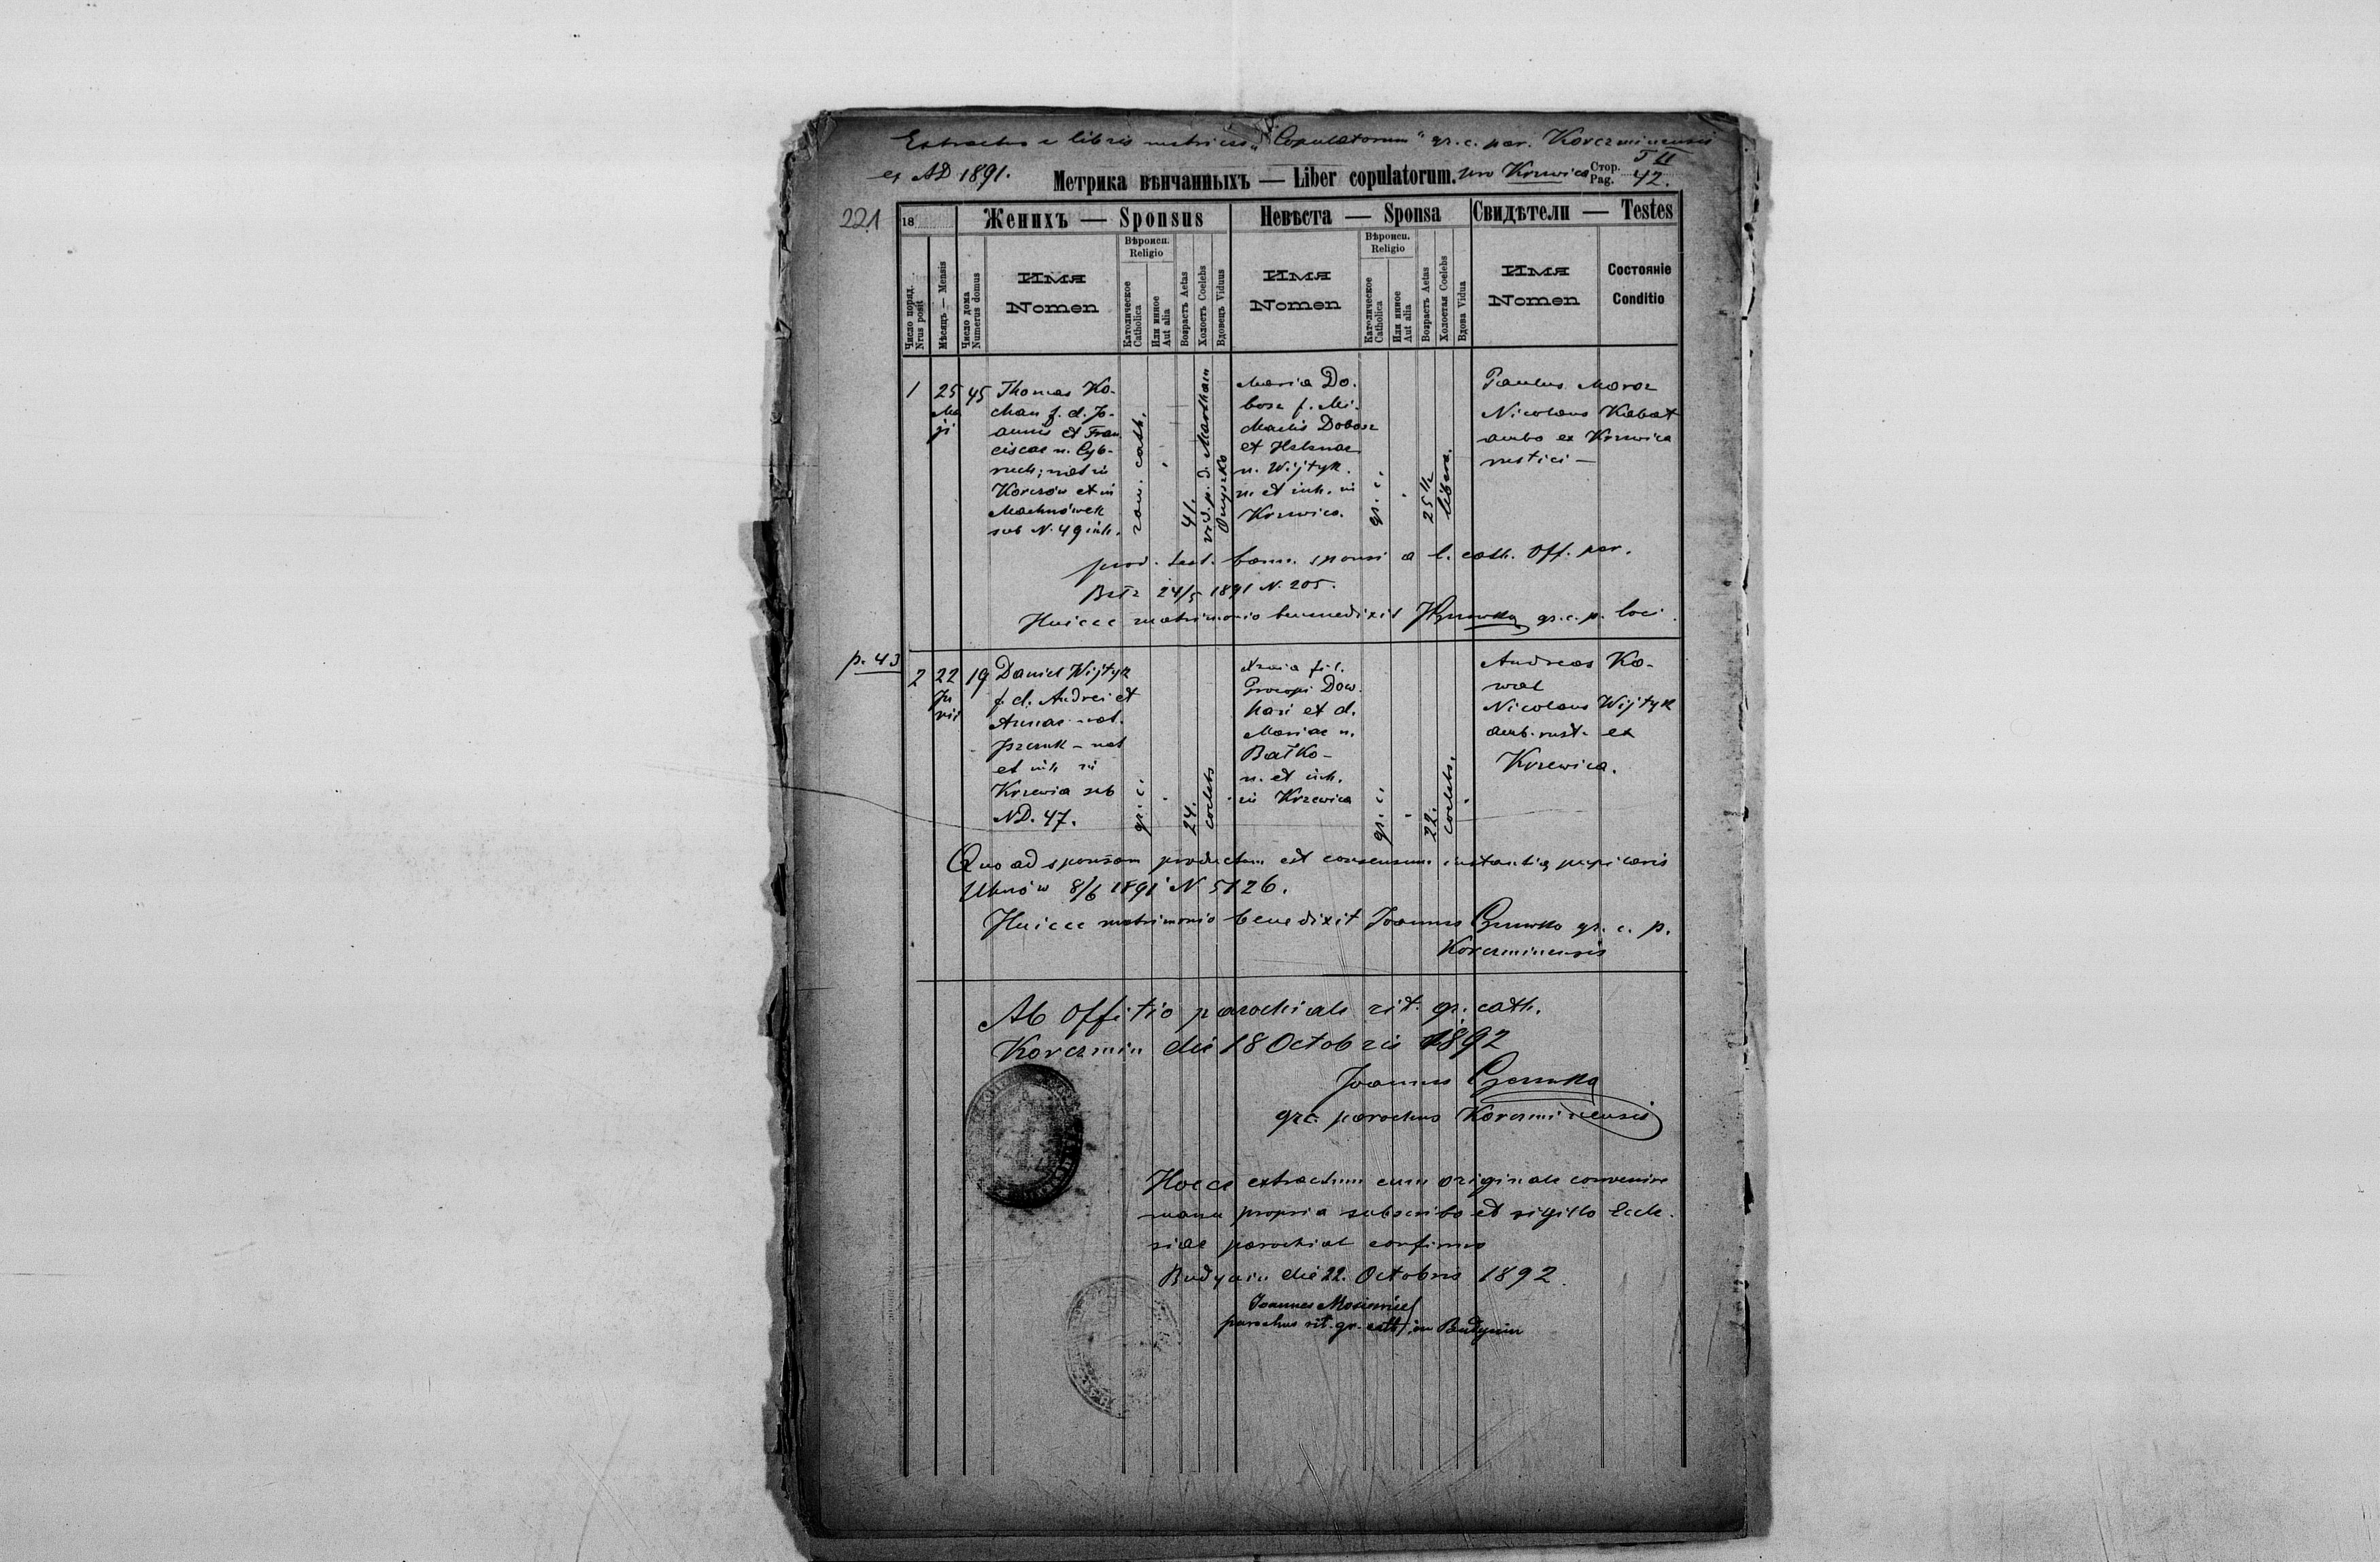 Extractus e libris metrices „Copulatorum" gr. c. par. Korczminensis
ex AD 1891.
Метрика вѣнчанныхъ — Liber copulatorum. pro Krzewica Стор. Pag. T II 42.
221
18
Женихъ — Sponsus
Невѣста — Sponsa
Свидѣтели — Testes
Число поряд. Nrus posit
Мѣсяцъ — Mensis
Число дома Numerus domus
Имя
Nomen
Вѣроисп.
Religio
Католическое Catholica
Или инное Aut alia
Возрастъ Aetas
Холостъ Coelebs
Вдовецъ Viduus
Имя
Nomen
Вѣроисп.
Religio
Католическое Catholica
Или инное Aut alia
Возрастъ Aetas
Холостая Coelebs
Вдова Vidua
Имя
Nomen
Состояніе
Conditio
1
25
Ma
ji
45
Thomas Ko-
chan f. d. Jo-
annis et Fran
ciscae n. Cyb-
ruch; nat in
Korczów et in
Machnówek
sub N. 49 inh.
rom. cath.
41.
vid. p. d. Martham
Onyszko
Maria Do.
bosz f. Mi.
chaelis Dobosz
et Helenae
n. Wijtyk.
n. et inh. in
Krzewica.
gr. c.
25 1/2
libera.
Paulus Moroz
Nicolaus Kabat
ambo ex Krzewica
rustici —
prod. test. bann. sponsi a l. cath. Off. par.
Bełz 24/5 1891 N. 205.
Huicce matrimonio benedixit gr. c. p. loci.
p. 43
2
22
Ju
nii
19
Daniel Wijtyk
f. d. Andrei et
Annae nat.
et inh in
Krzewia sub
ND. 47.
gr. c.
24.
coelebs
fil.
Procopi Dow
hari et d.
Mariae n.
Bałko-
n. et inh.
in Krzewica
gr. c.
22.
coelebs.
Andreas Ko-
wal
Nicolaus Wijtyk
amb. rust. ex
Krzewica.
Quo ad sponsam productum est consensum instantia pupilaris
Uhnów 8/6 1891 N 5126.
Huicce matrimonio benedixit Joannes gr. c. p.
Korczminensis
Ab Offitio parochiale rit. gr. cath.
Korczmin die 18 Octobris 1892
Joannes
gr. c. parochus Korczminensis
Hocce extractum cum originale convenire
manu propria subscribo et sigillo Eccle.
siae parochial confirmo
Budynin die 22. Octobris 1892.
Joannes
parochus rit. gr. cath. in Budynin